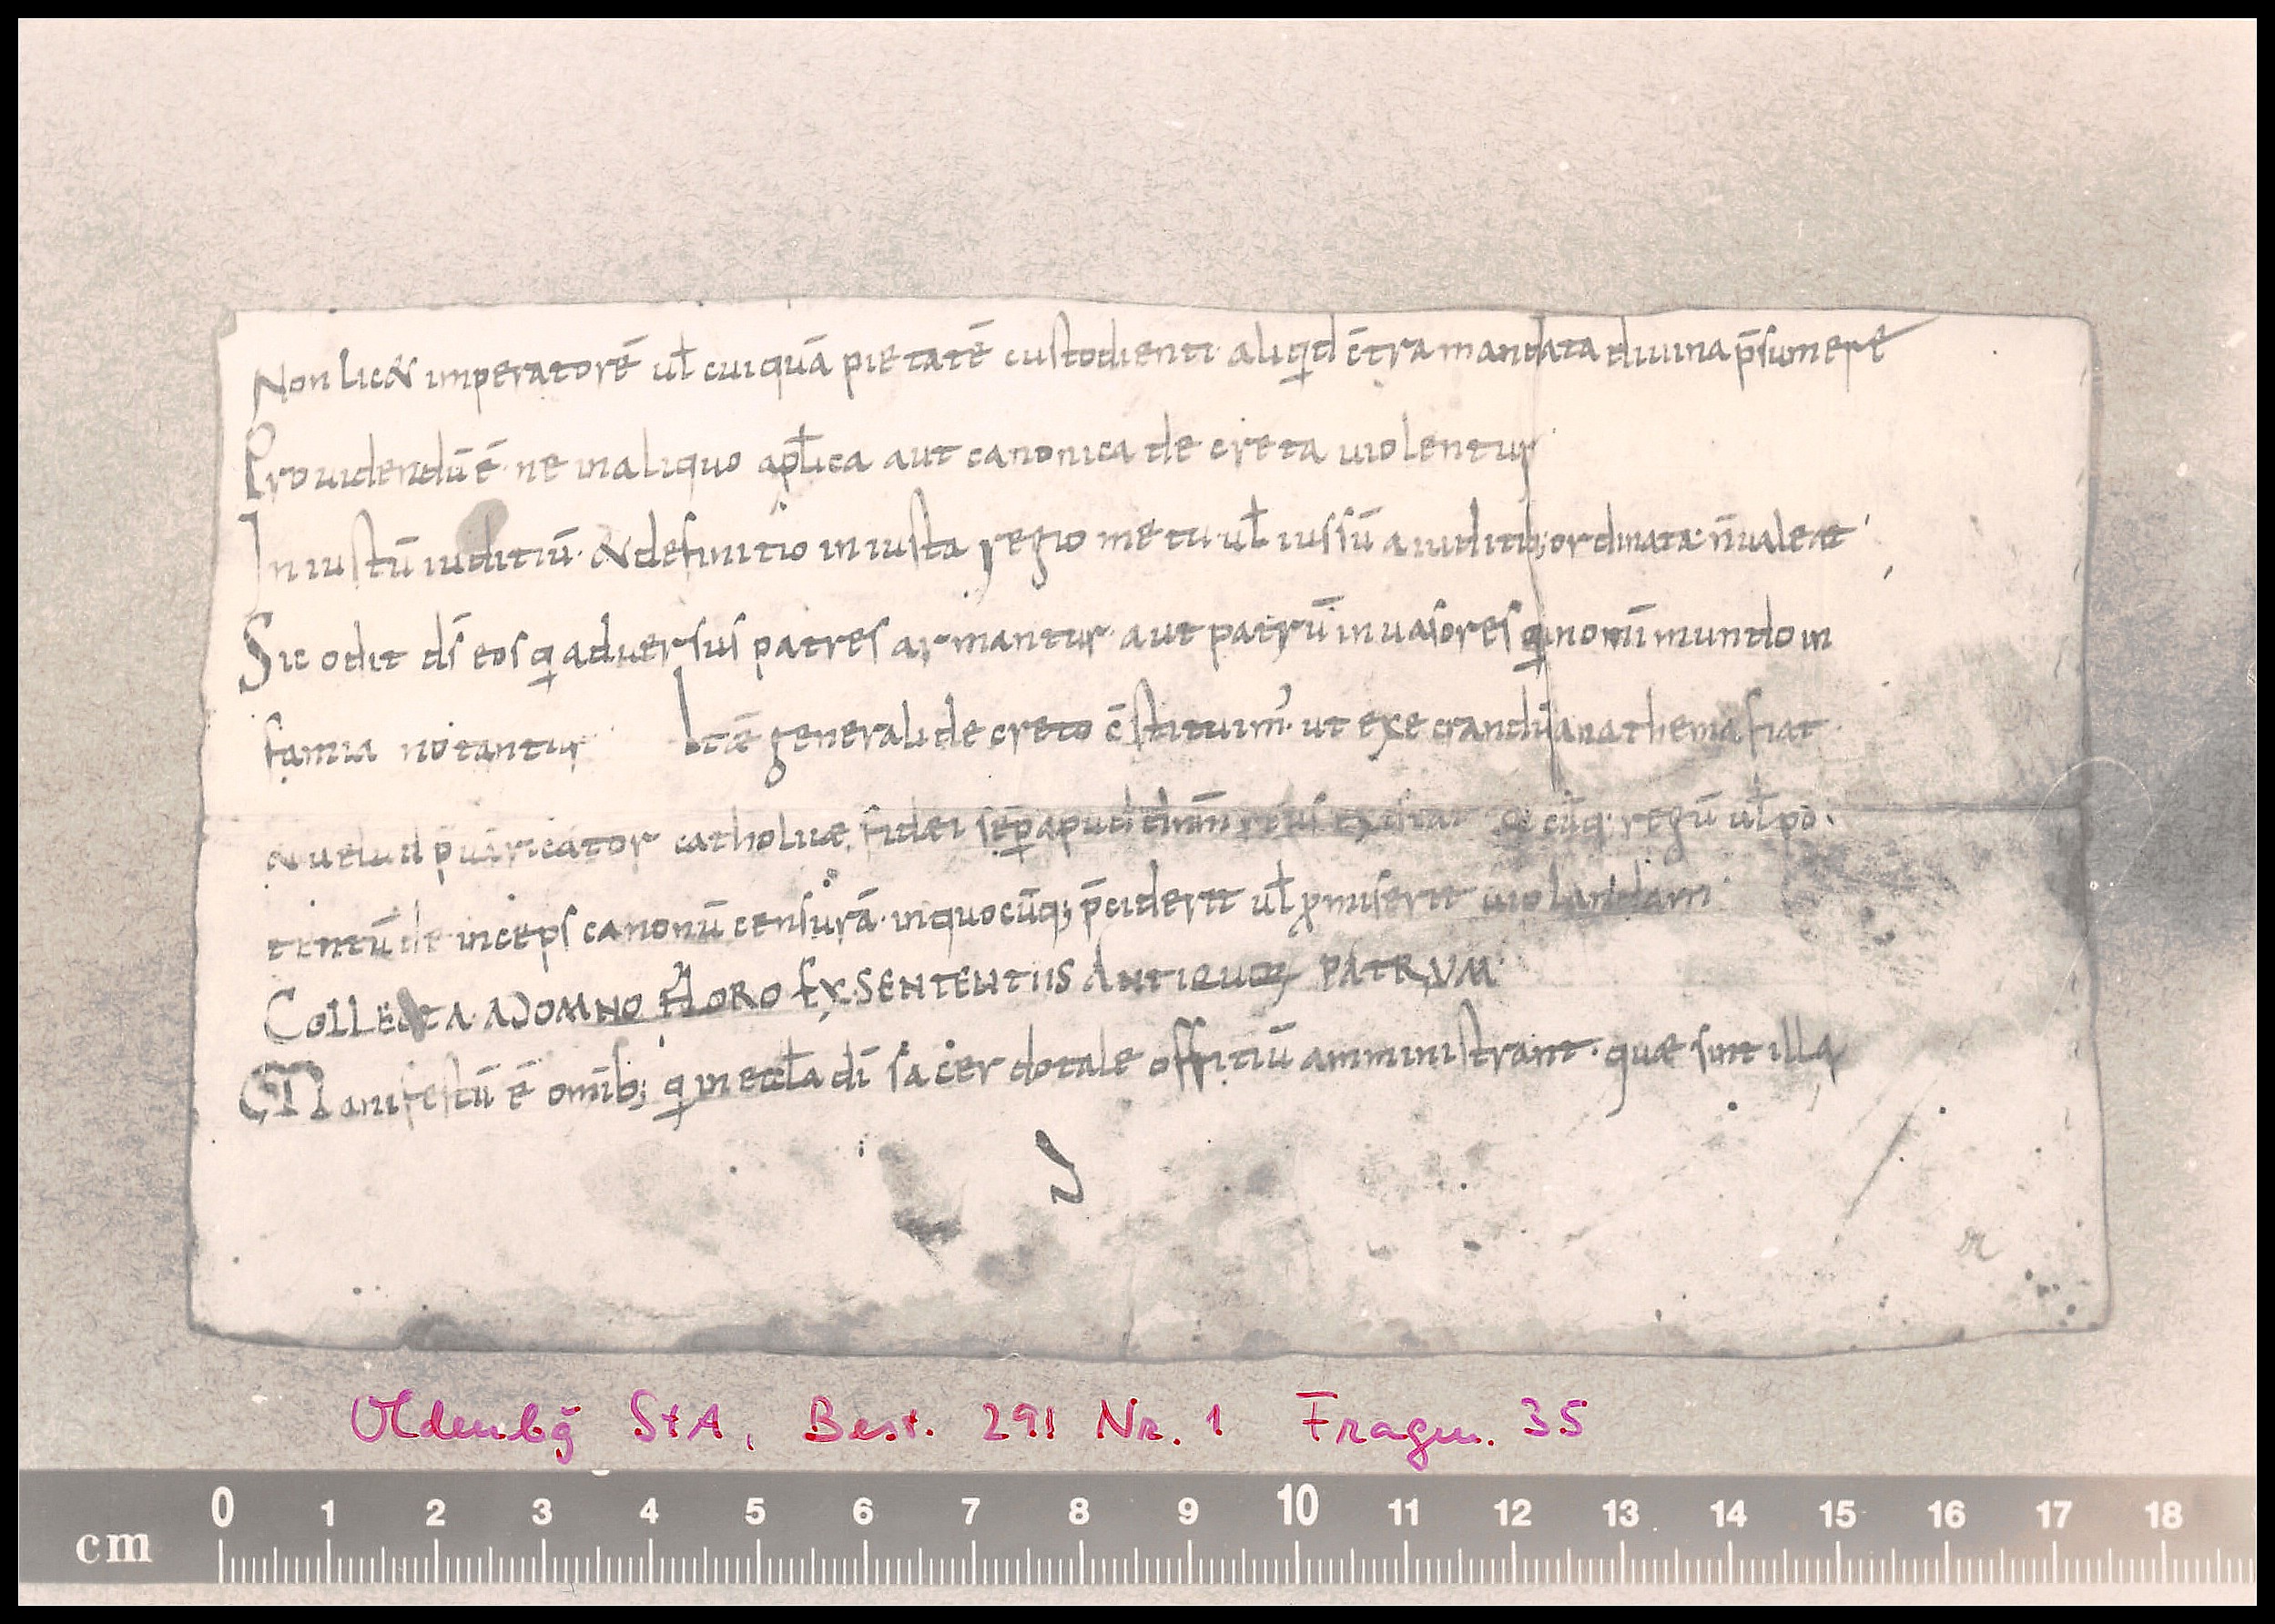 Non lic& imperatorē ul̄ cuiquā pietatē custodienti· aliqid c̄tra mandata diuina p̄sumere
Prouidendū ē· ne in aliquo apl̄ica aut canonica decreta uiolentur·
Iniustū iuditiū· & definitio iniusta regio metu· ul̄ iussū a iuditib; ordinata· n̄ ualeat
Sic odit d̄s eos q aduersus patres armantur· aut patrū inuasores q in omī mundo in
famia notantur Itē generali decreto c̄stituim᾽· ut execrandū anathema fiat·
& uelud p̄uaricator catholicæ fidei sēp apud dn̄m reus existat q cūq; regū ul̄ po·
tentū deinceps canonū censurā· in quocūq; p̄ciderit ul̄ p̱miserit uiolandam·
COLLECTA· A DOMNO FLORO EX SENTENTIIS ANTIQUOꝝ PATRVM·
Manifestū ē omīb; q in eccl̄a dī sacerdotale offitiū amministrant· quæ sint illa
Oldenbg̃ StA, Best. 291 Nr. 1 Fragm. 35
cm 0 1 2 3 4 5 6 7 8 9 10 11 12 13 14 15 16 17 18